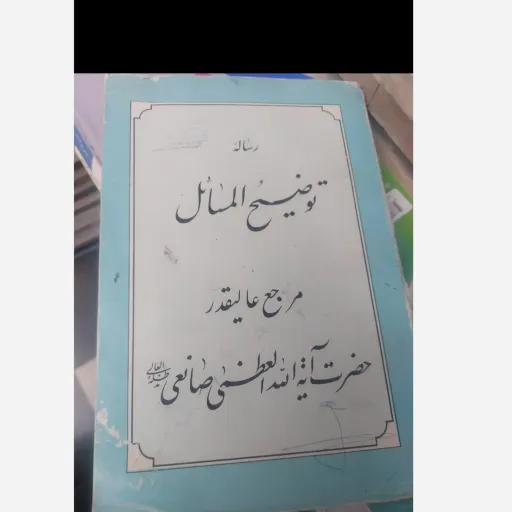 رسالهٔ
توضیح المسائل
مرجع عالیقدر
حضرت آیة الله العظمی صانعی مدظله العالی